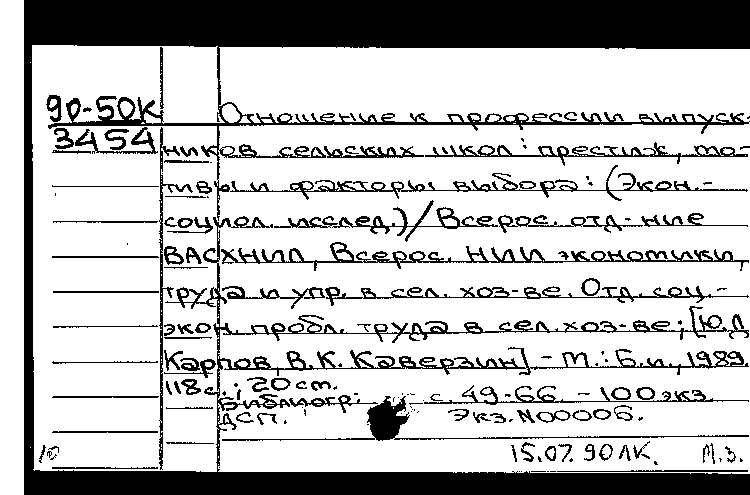 90-50К
3454
Отношение к профессии выпуск-
ников сельских школ: престиж, мо-
тивы и факторы выбора: (Экон.-
социол. исслед.)/Всерос. отд-ние
ВАСХНИЛ, Всерос. НИИ экономики,
труда и упр. в сел. хоз-ве. Отд. соц.-
экон. пробл. труда в сел. хоз-ве; [Ю.Д.
Карпов, В.К. Каверзин] - М.: Б.и., 1989.
118с.; 20 cm.
Библиогр: с. 49-66. - 100 экз.
ДСП. Экз. N00006.
15.07.90 ЛК. М.З.
10